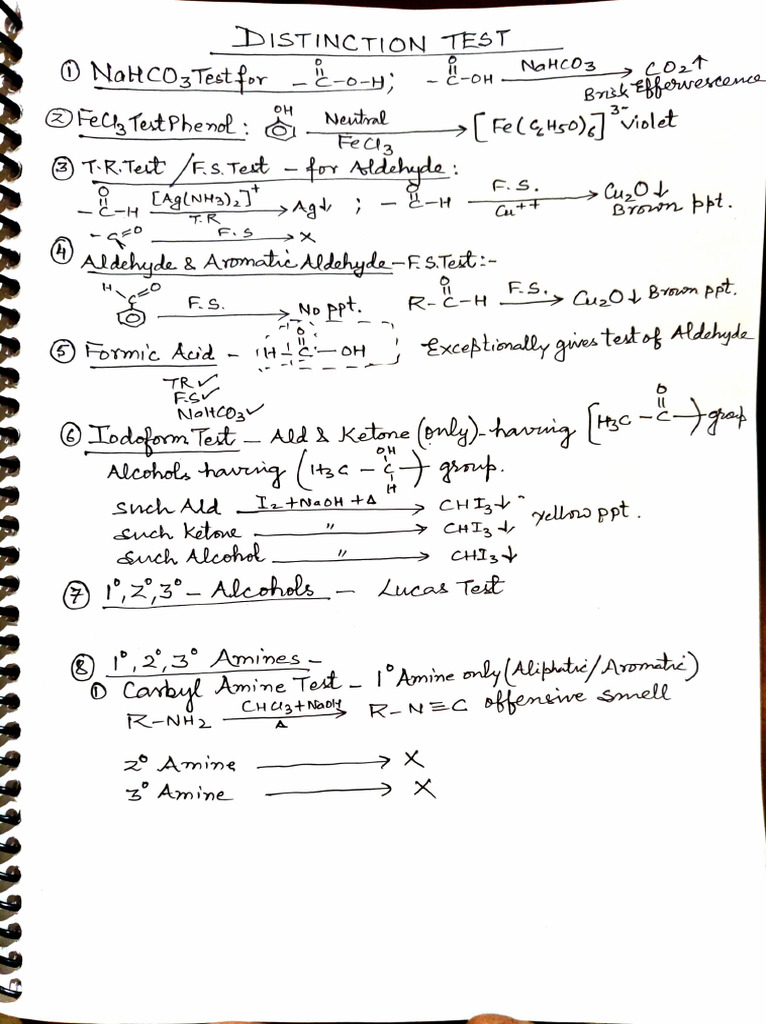 DISTINCTION TEST
① NaHCO3 Test for -C(=O)-O-H; -C(=O)-OH —NaHCO3→ CO2↑
Brisk Effervescence
② FeCl3 Test Phenol: OH —Neutral FeCl3→ [Fe(C6H5O)6]3- violet
③ T.R. Test / F.S. Test - for Aldehyde:
-C(=O)-H —[Ag(NH3)2]+ T.R→ Ag↓ ; -C(=O)-H —F.S. Cu++→ Cu2O↓ Brown ppt.
-C=O —F.S→ X
④ Aldehyde & Aromatic Aldehyde - F.S. Test:-
H C=O —F.S.→ No ppt. R-C(=O)-H —F.S.→ Cu2O↓ Brown ppt.
⑤ Formic Acid - H-C(=O)-OH Exceptionally gives test of Aldehyde
TR✓
F.S✓
NaHCO3✓
⑥ Iodoform Test - Ald & Ketone (only) - having [H3C-C(=O)-) group
Alcohols having (H3C-C(OH)(H)-) group.
such Ald —I2+NaOH+Δ→ CHI3↓ yellow ppt.
such Ketone —"→ CHI3↓
such Alcohol —"→ CHI3↓
⑦ 1°, 2°, 3° - Alcohols - Lucas Test
⑧ 1°, 2°, 3° Amines -
① Carbyl Amine Test - 1° Amine only (Aliphatic/Aromatic)
R-NH2 —CHCl3+NaOH Δ→ R-N≡C offensive smell
2° Amine → X
3° Amine → X